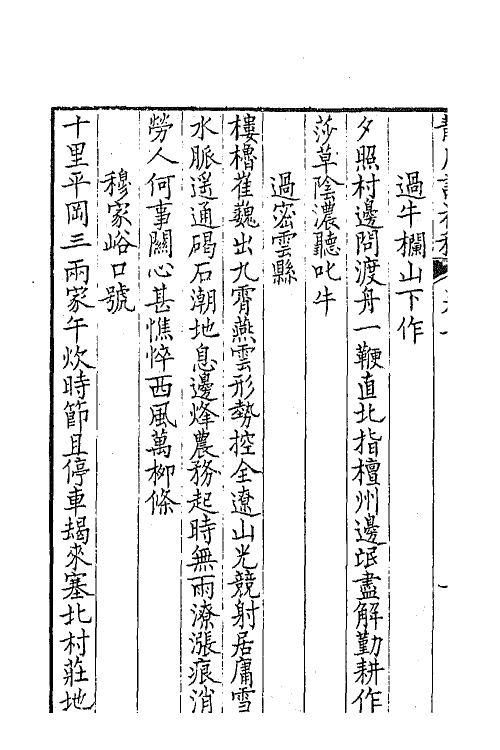 過牛欄山下作
夕照村邊問渡舟一鞭直北指檀州邊氓盡解勤耕作
莎草陰濃聽叱牛
過密雲縣
樓櫓崔巍出九霄燕雲形勢控全遼山光競射居庸雪
水脈遥通碣石潮地息邊烽農務起時無雨潦漲痕消
勞人何事關心甚憔悴西風萬柳條
穆家峪口號
十里平岡三兩家午炊時節且停車朅來塞北村莊地